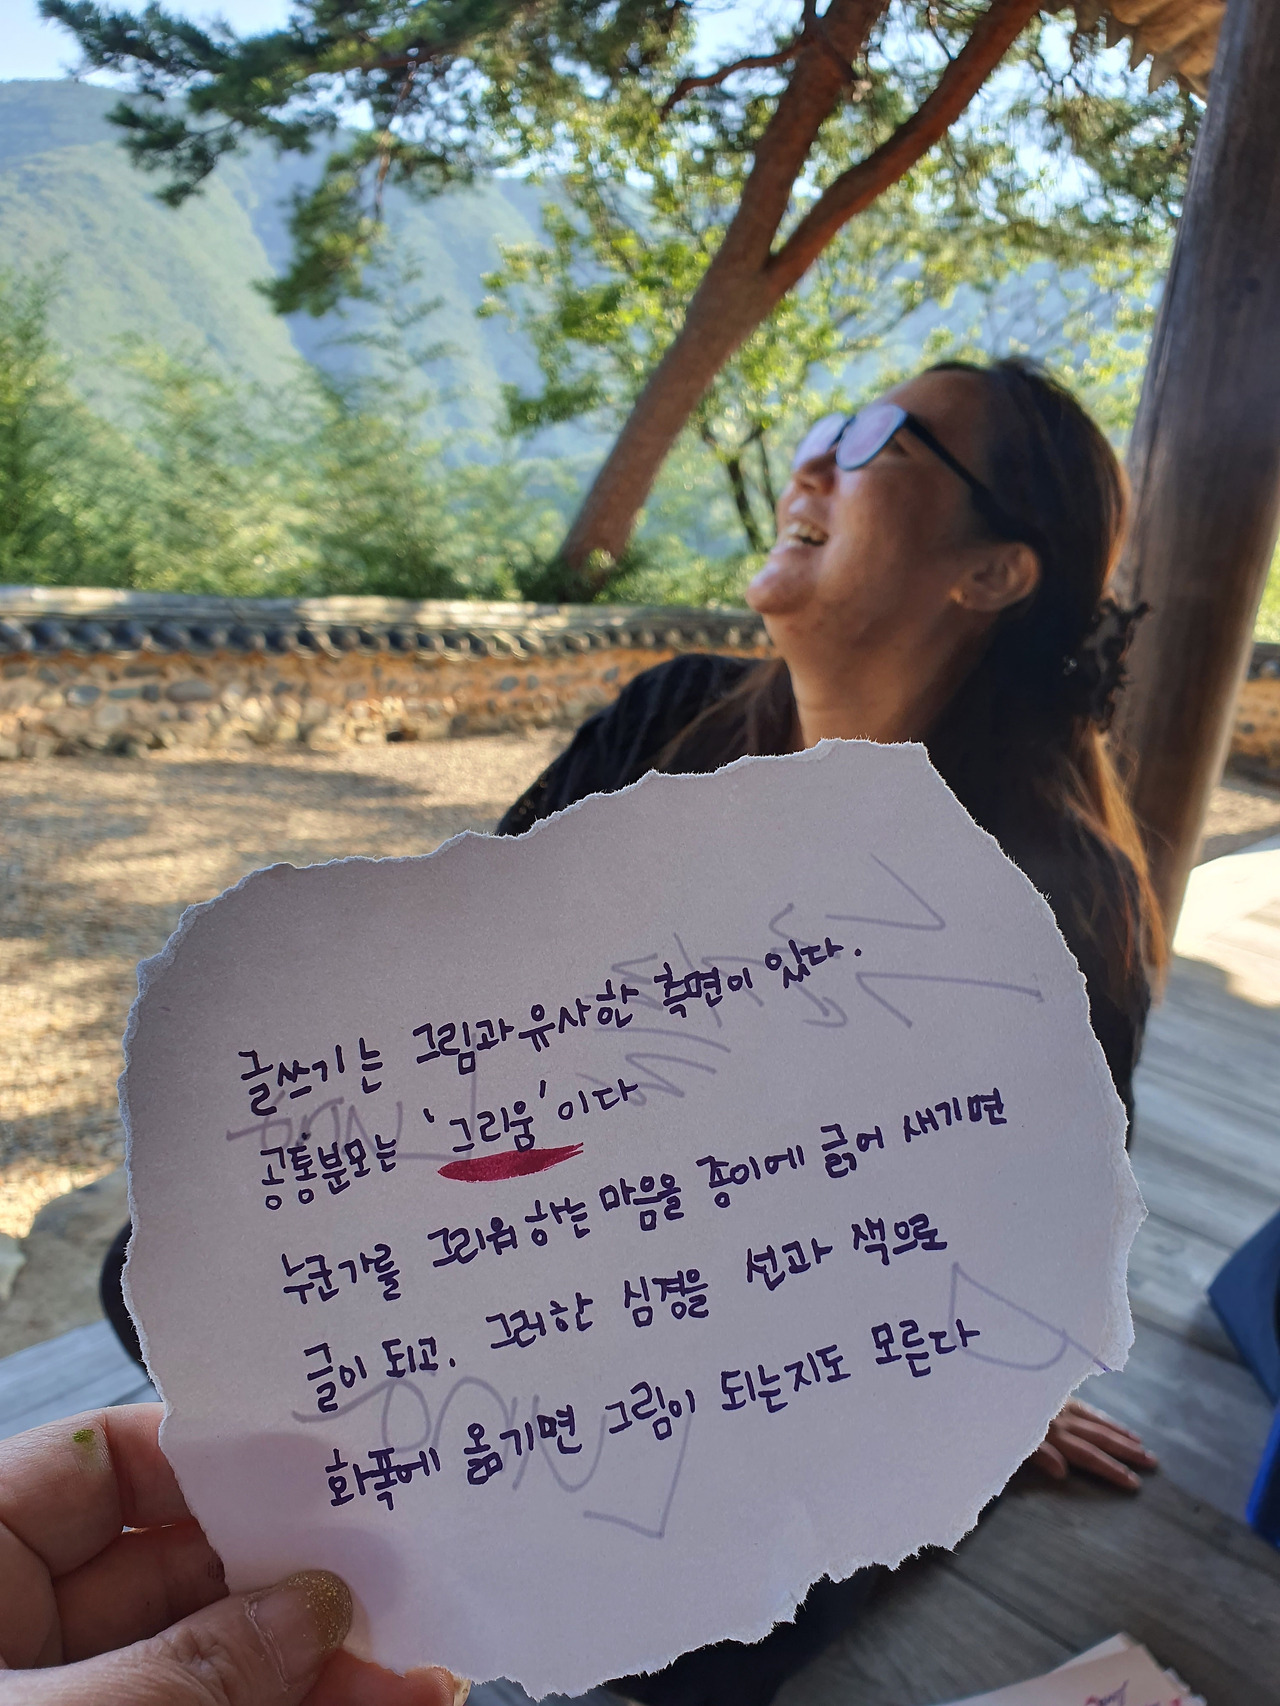 글쓰기는 그림과 유사한 측면이 있다.
공통분모는 '그리움'이다
누군가를 그리워 하는 마음을 종이에 긁어 새기면
글이 되고. 그러한 심경을 선과 색으로
화폭에 옮기면 그림이 되는지도 모른다